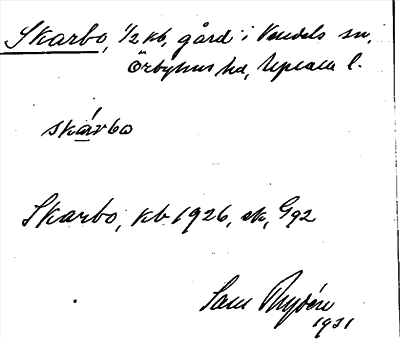 Skarbo, 1/2 kb, gård i Vendels sn,
Örbyhus hd, Uppsala l.
skárbo
Skarbo, kb 1926, ek, G92
Sam Rydén
1931